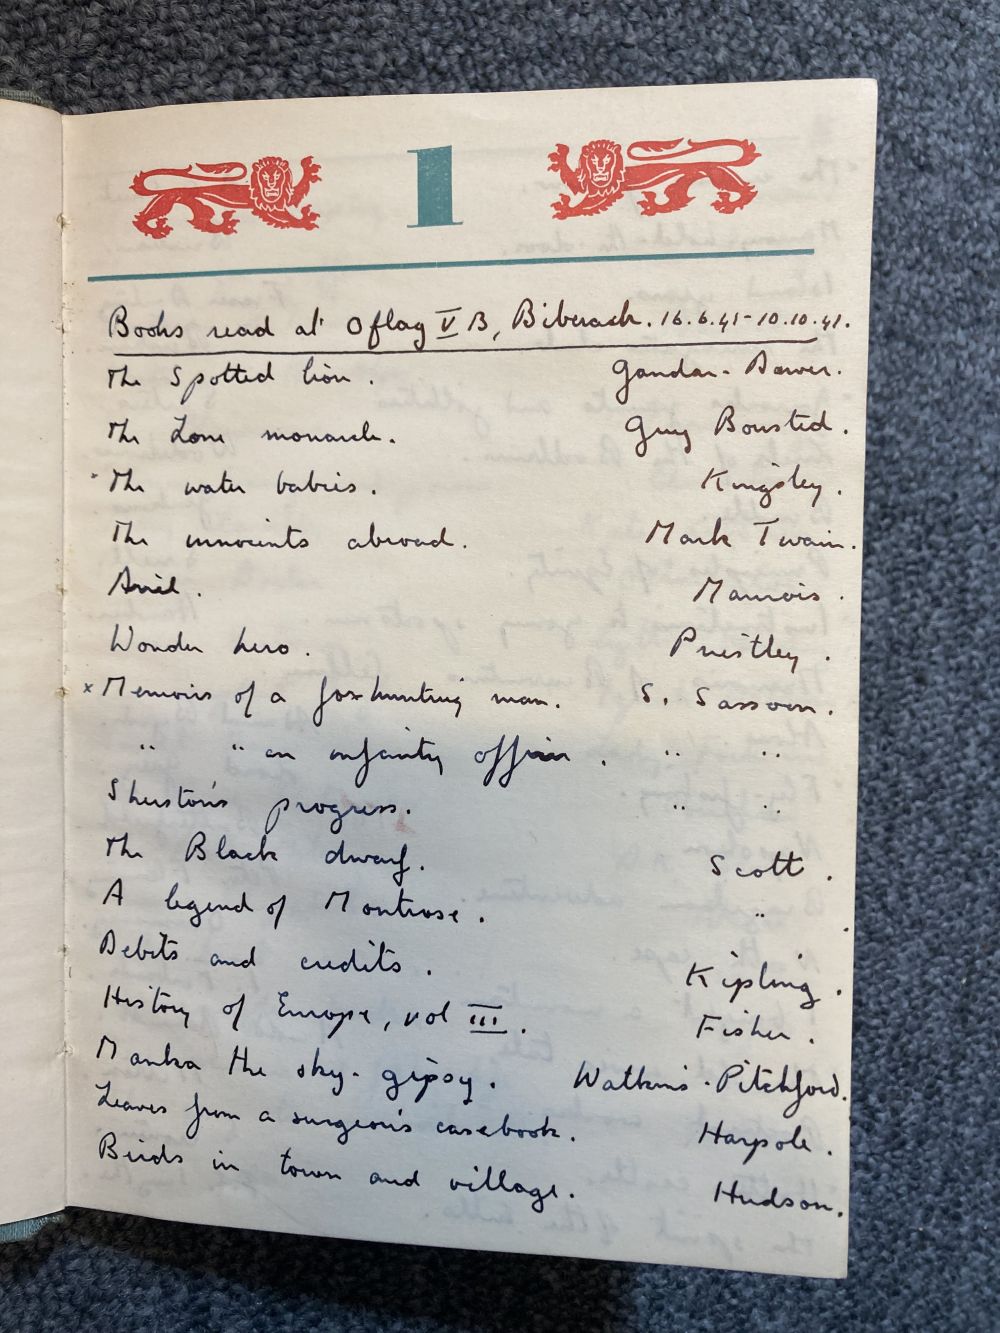 1
Books read at Oflag V B, Biberach. 16.6.41-10.10.41.
The Spotted lion. Gandar-Dower.
The Lone monarch. Guy Bousted.
The water babies. Kingsley.
The innocents abroad. Mark Twain.
Ariel. Maurois.
Wonder hero. Priestley.
x Memoirs of a fox-hunting man. S. Sassoon.
" " an infantry officer. " "
Sherston's progress. " "
The Black dwarf. Scott.
A legend of Montrose. " .
Debits and credits. Kipling.
History of Europe, vol III. Fisher.
Manka the sky-gipsy. Watkins-Pitchford.
Leaves from a surgeon's casebook. Harpole.
Birds in town and village. Hudson.